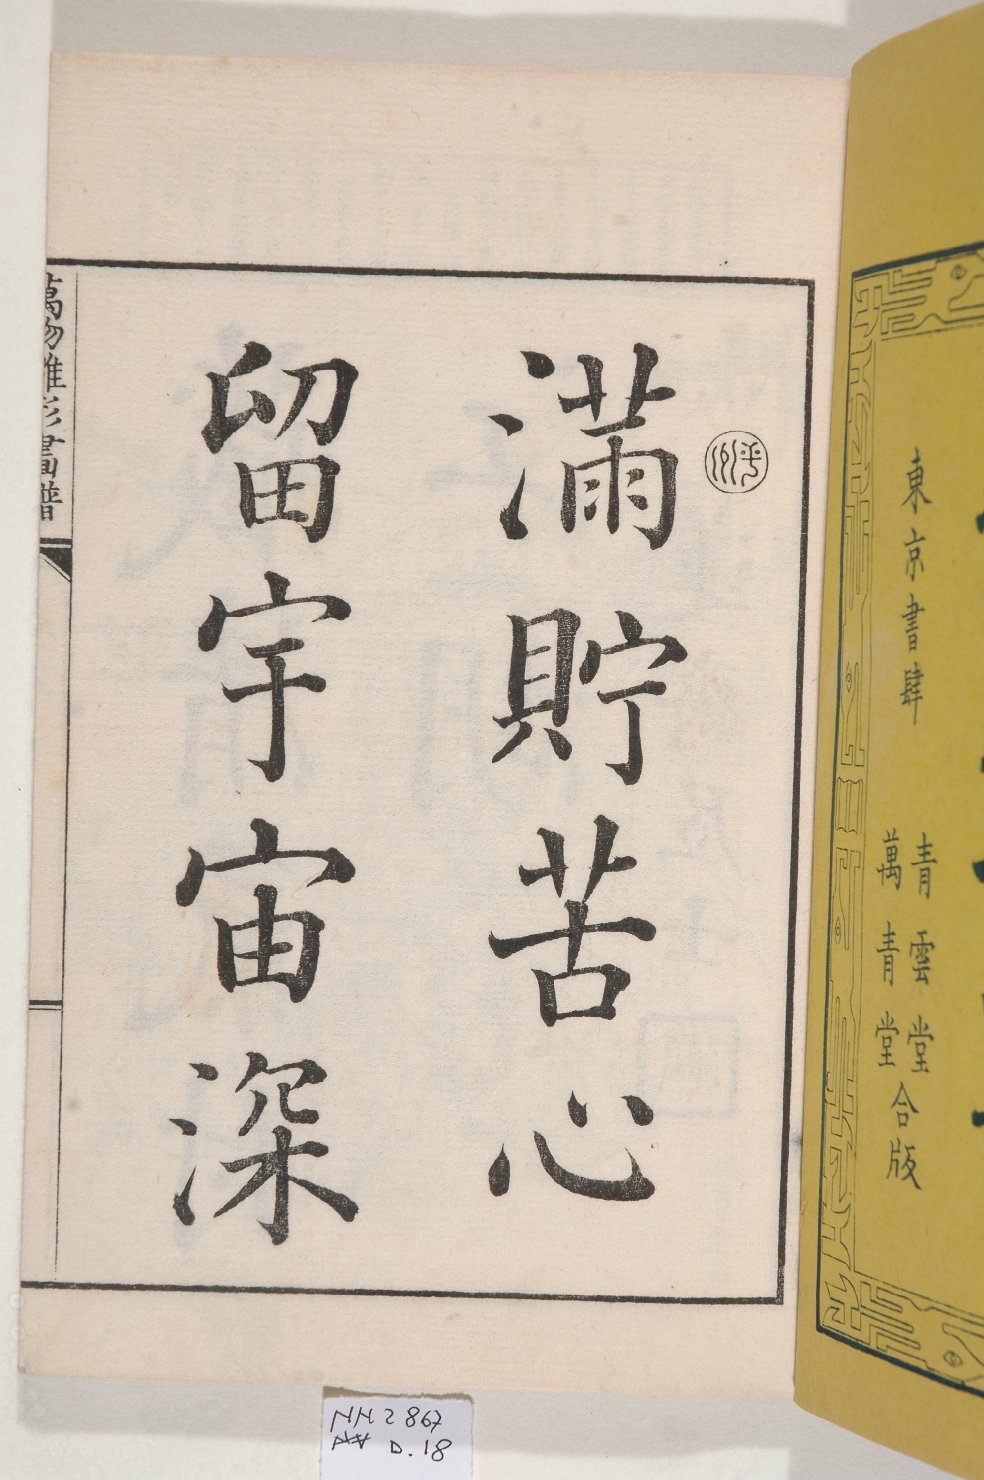 東京書肆
青雲堂
萬青堂
合版
滿貯苦心
留宇宙深
萬物雛形畫譜
NH2867
D.18